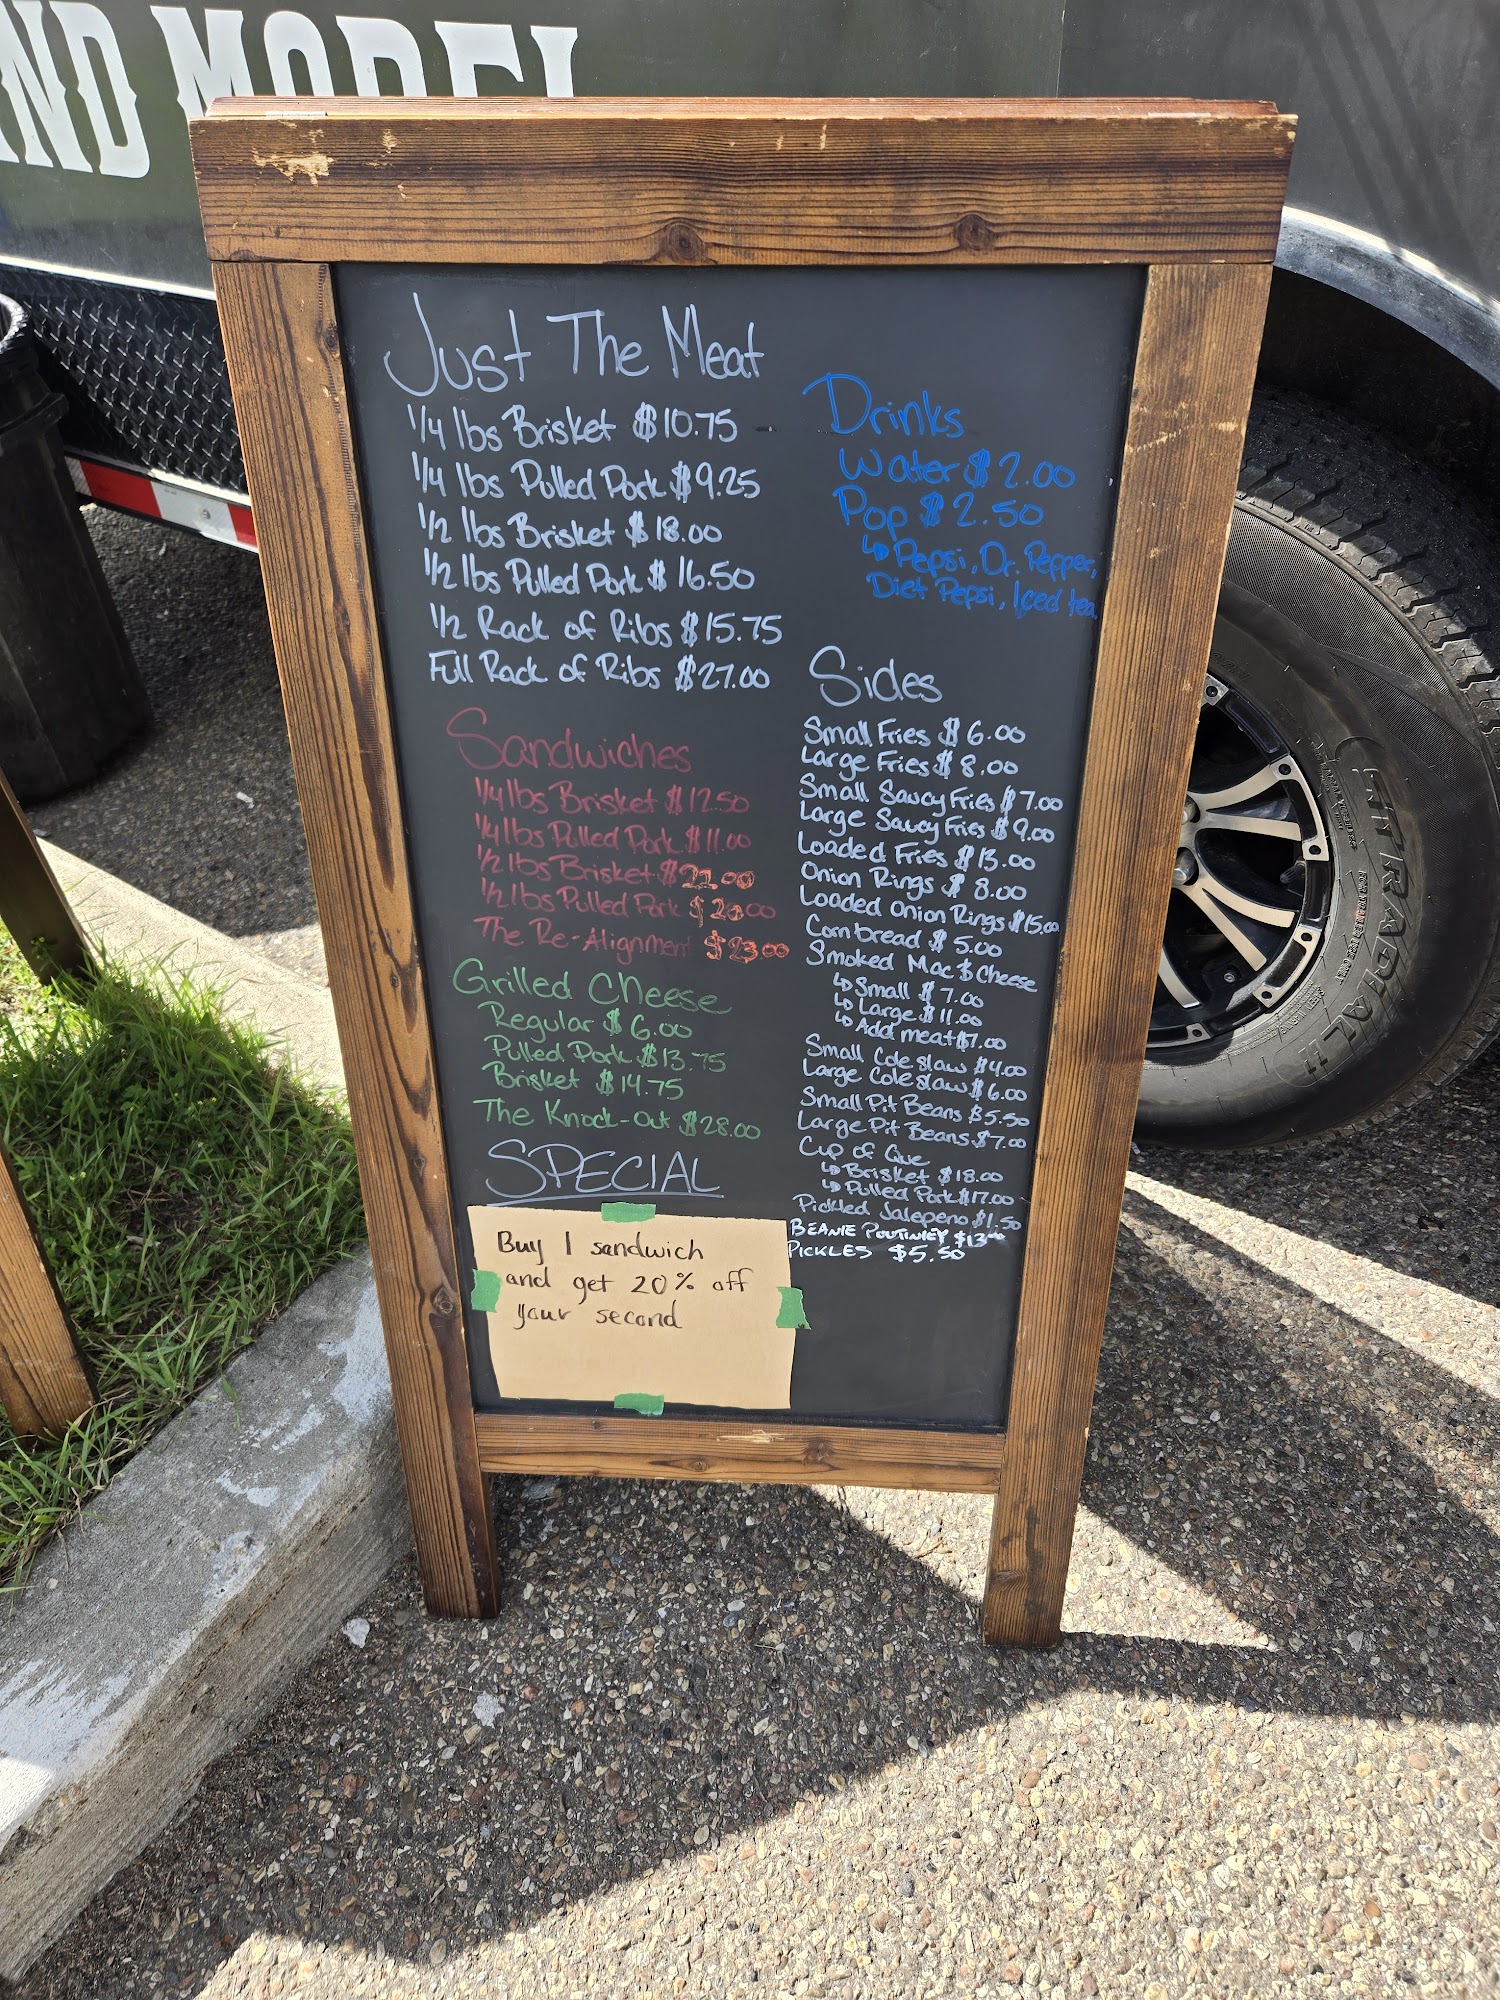 ND MODEL
Just The Meat
1/4 lbs Brisket $10.75
1/4 lbs Pulled Pork $9.25
1/2 lbs Brisket $18.00
1/2 lbs Pulled Pork $16.50
1/2 Rack of Ribs $15.75
Full Rack of Ribs $27.00
Sandwiches
1/4 lbs Brisket $12.50
1/4 lbs Pulled Pork $11.00
1/2 lbs Brisket $22.00
1/2 lbs Pulled Pork $20.00
The Re-Alignment $23.00
Grilled Cheese
Regular $6.00
Pulled Pork $13.75
Brisket $14.75
The Knock-Out $28.00
SPECIAL
Buy 1 sandwich
and get 20% off
your second
Drinks
Water $2.00
Pop $2.50
↳ Pepsi, Dr. Pepper,
Diet Pepsi, Iced tea
Sides
Small Fries $6.00
Large Fries $8.00
Small Saucy Fries $7.00
Large Saucy Fries $9.00
Loaded Fries $13.00
Onion Rings $8.00
Loaded Onion Rings $15.00
Corn bread $5.00
Smoked Mac & Cheese
↳ Small $7.00
↳ Large $11.00
↳ Add meat $7.00
Small Cole slaw $4.00
Large Cole slaw $6.00
Small Pit Beans $5.50
Large Pit Beans $7.00
Cup of Que
↳ Brisket $18.00
↳ Pulled Pork $17.00
Pickled Jalapeno $1.50
BEANIE POUTINIEY $13.00
PICKLES $5.50
RADIAL